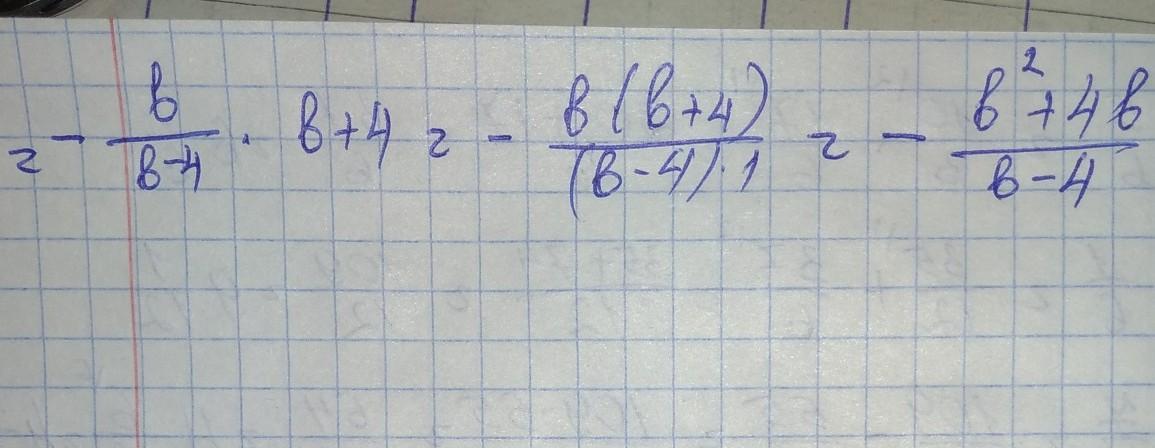 = - \frac{b}{b-4} \cdot b+4 = - \frac{b(b+4)}{(b-4) \cdot 1} = - \frac{b^2+4b}{b-4}